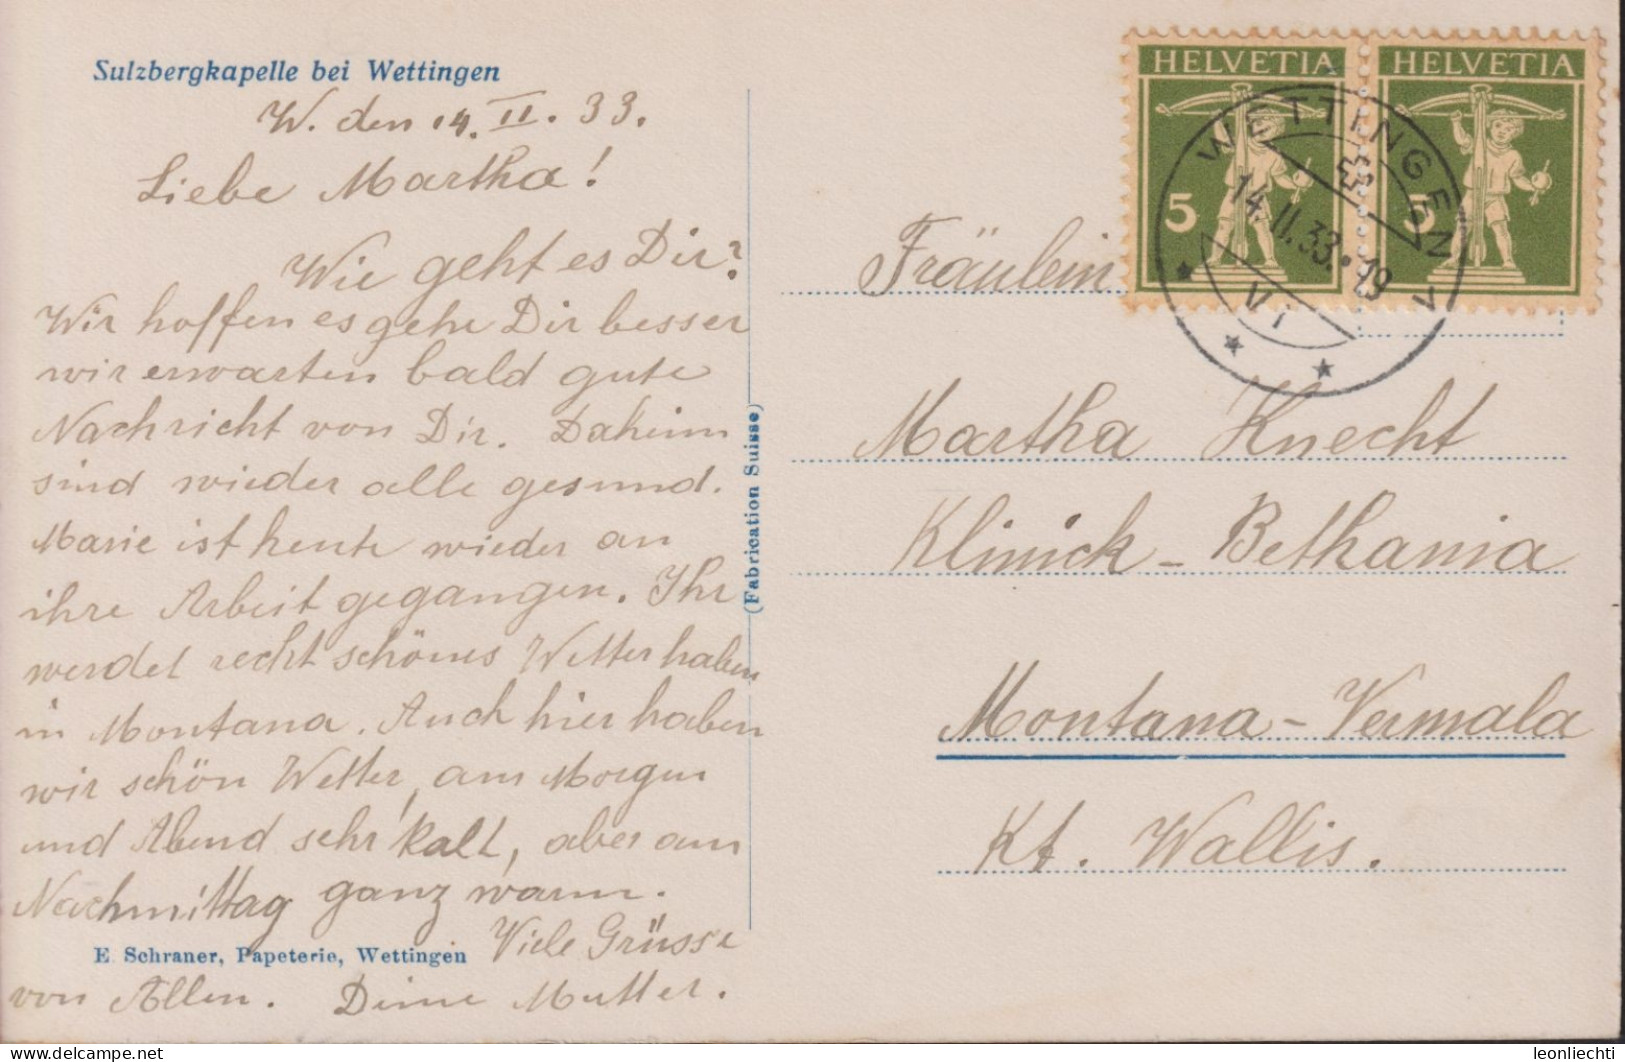 Sulzbergkapelle bei Wettingen
W. den 14. II. 33.
Liebe Martha!
Wie geht es Dir?
Wir hoffen es gehe Dir besser
wir erwarten bald gute
Nachricht von Dir. Daheim
sind wieder alle gesund.
Marie ist heute wieder an
ihre Arbeit gegangen. Ihr
werdet recht schönes Wetter haben
in Montana. Auch hier haben
wir schön Wetter, am Morgen
und Abend sehr kalt, aber am
Nachmittag ganz warm.
Viele Grüsse
von Allen. Deine Mutter.
E. Schraner, Papeterie, Wettingen
(Fabrication Suisse)
HELVETIA
5
HELVETIA
5
WETTINGEN
14. II. 33.-19
VI
Fräulein
Martha Knecht
Klinick-Bethania
Montana-Vermala
Kt. Wallis.
leonliechti